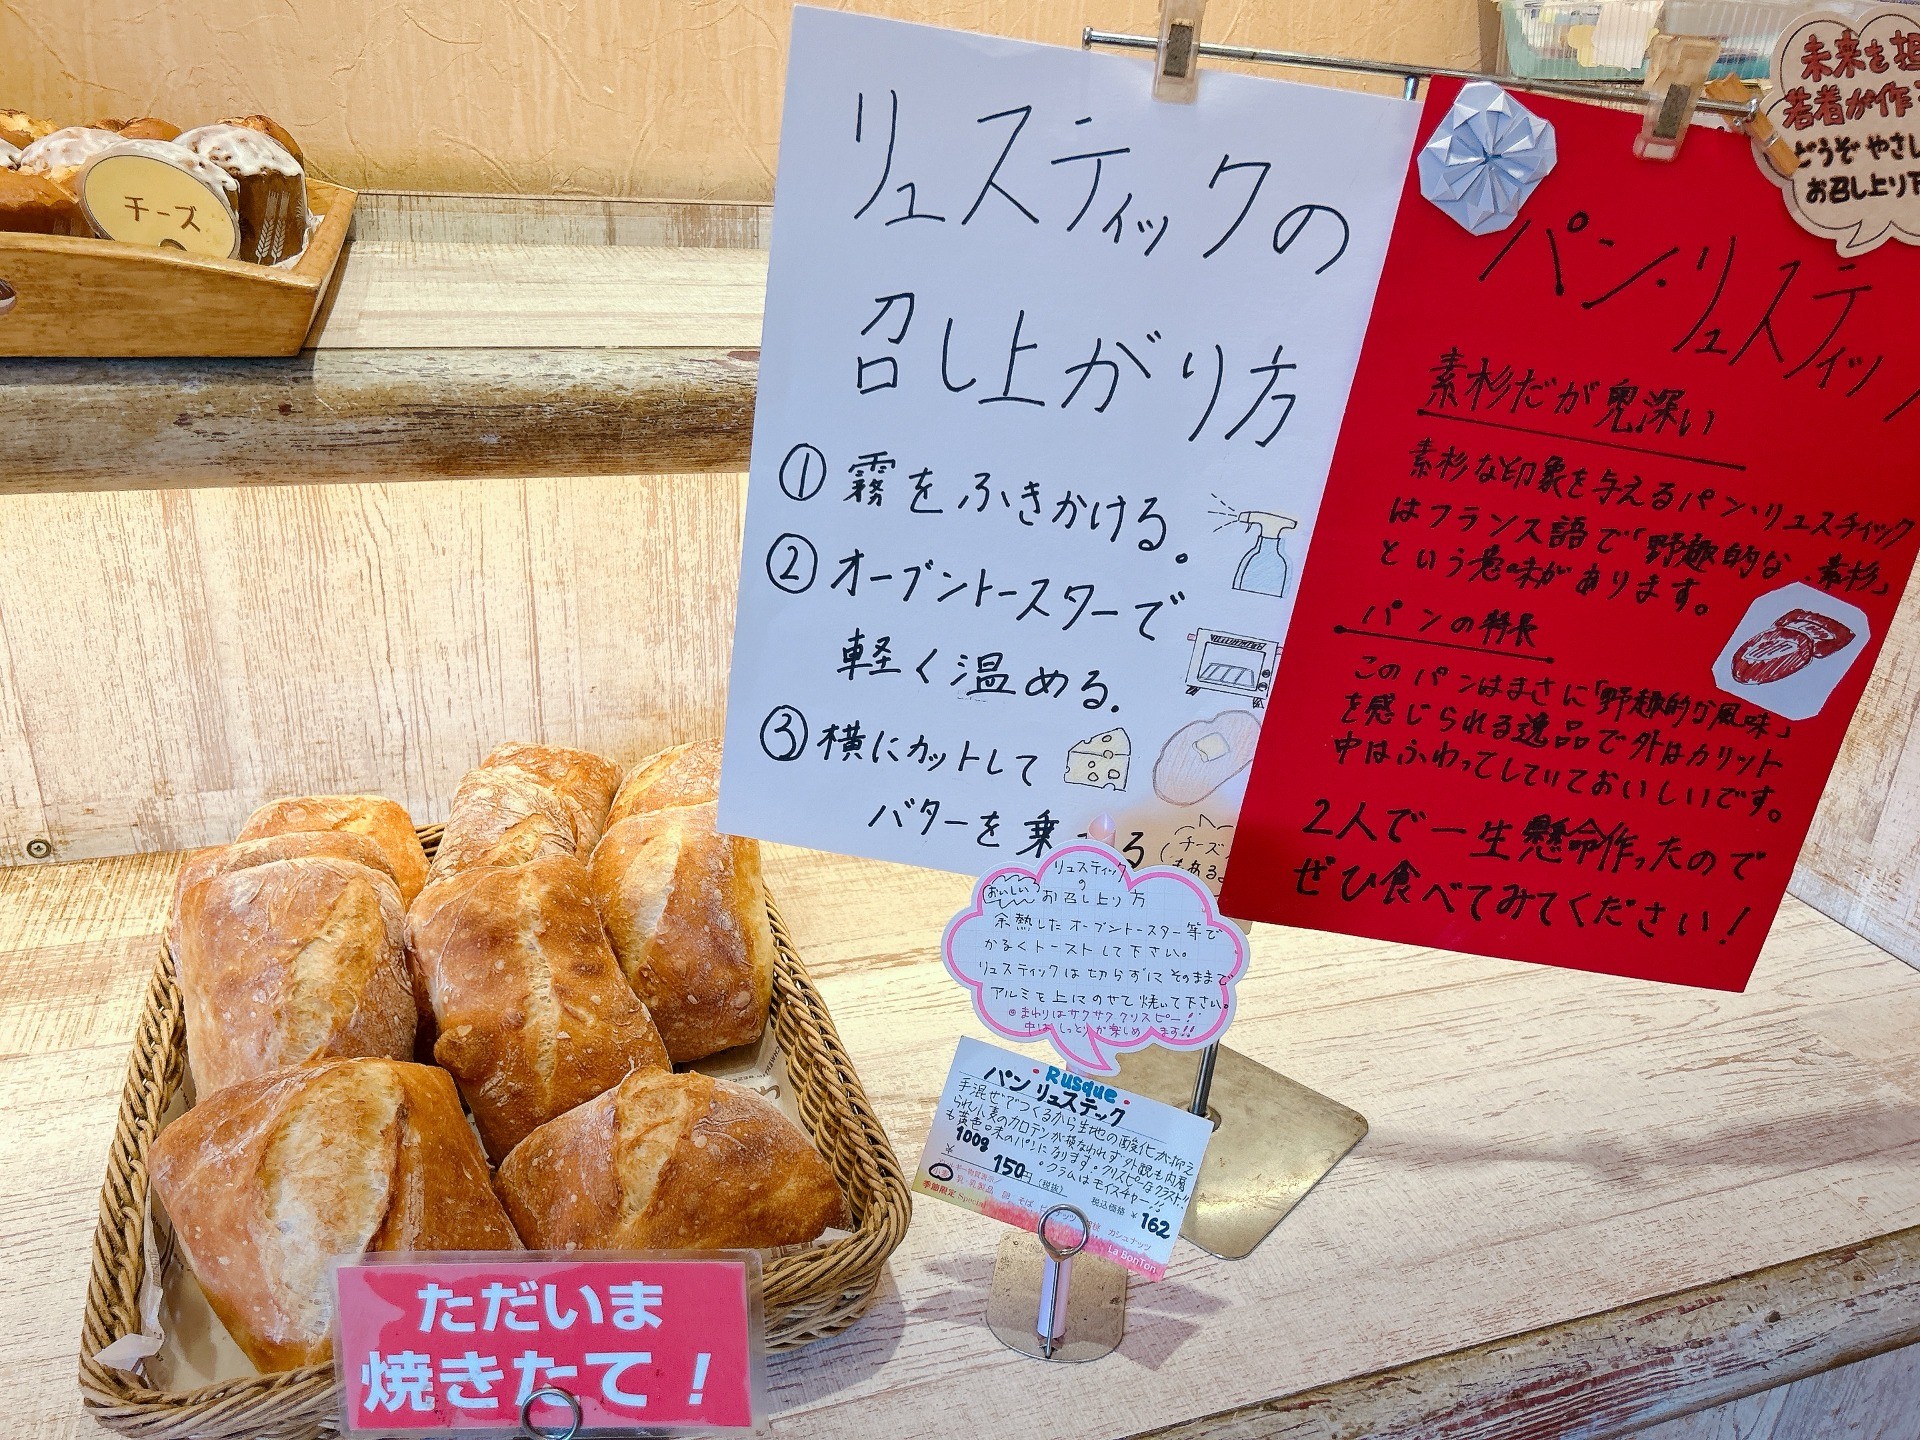 チーズ
リュスティックの
召し上がり方
① 霧をふきかける。
② オーブントースターで
軽く温める。
③ 横にカットして
バターを乗
る
チーズ
もある。
未来を担
若者が作
どうぞ やさし
お召し上り下
パン・リュスティック
素杉だが奥深い
素杉な印象を与えるパン・リュスチィック
はフランス語で「野趣的な、素杉」
という意味があります。
パンの特長
このパンはまさに「野趣的な風味」
を感じられる逸品で外はカリット
中はふわってしていておいしいです。
2人で一生懸命作ったので
ぜひ食べてみてください！
リュスティック
の
おいしい お召し上り方
余熱したオーブントースター等で
かるくトーストして下さい。
リュスティックは切らずにそのままで
アルミを上にのせて焼いて下さい。
◎まわりはサクサククリスピー！
中はしっとりが楽しめます!!
・Rusque・
パン リュステック
手混ぜでつくるから生地の酸化が抑え
られ小麦のカロテンが損なわれず外観も内層
も黄色味のパンになります。クリスピーなクラスト!!
100g
。クラムはモイスチャー!!
¥ 150円 (税抜)
税込価格 ¥162
小麦 乳・乳製品 卵 そば ピーナッツ
カシュナッツ
季節限定 Special
La BonTon
ただいま
焼きたて！